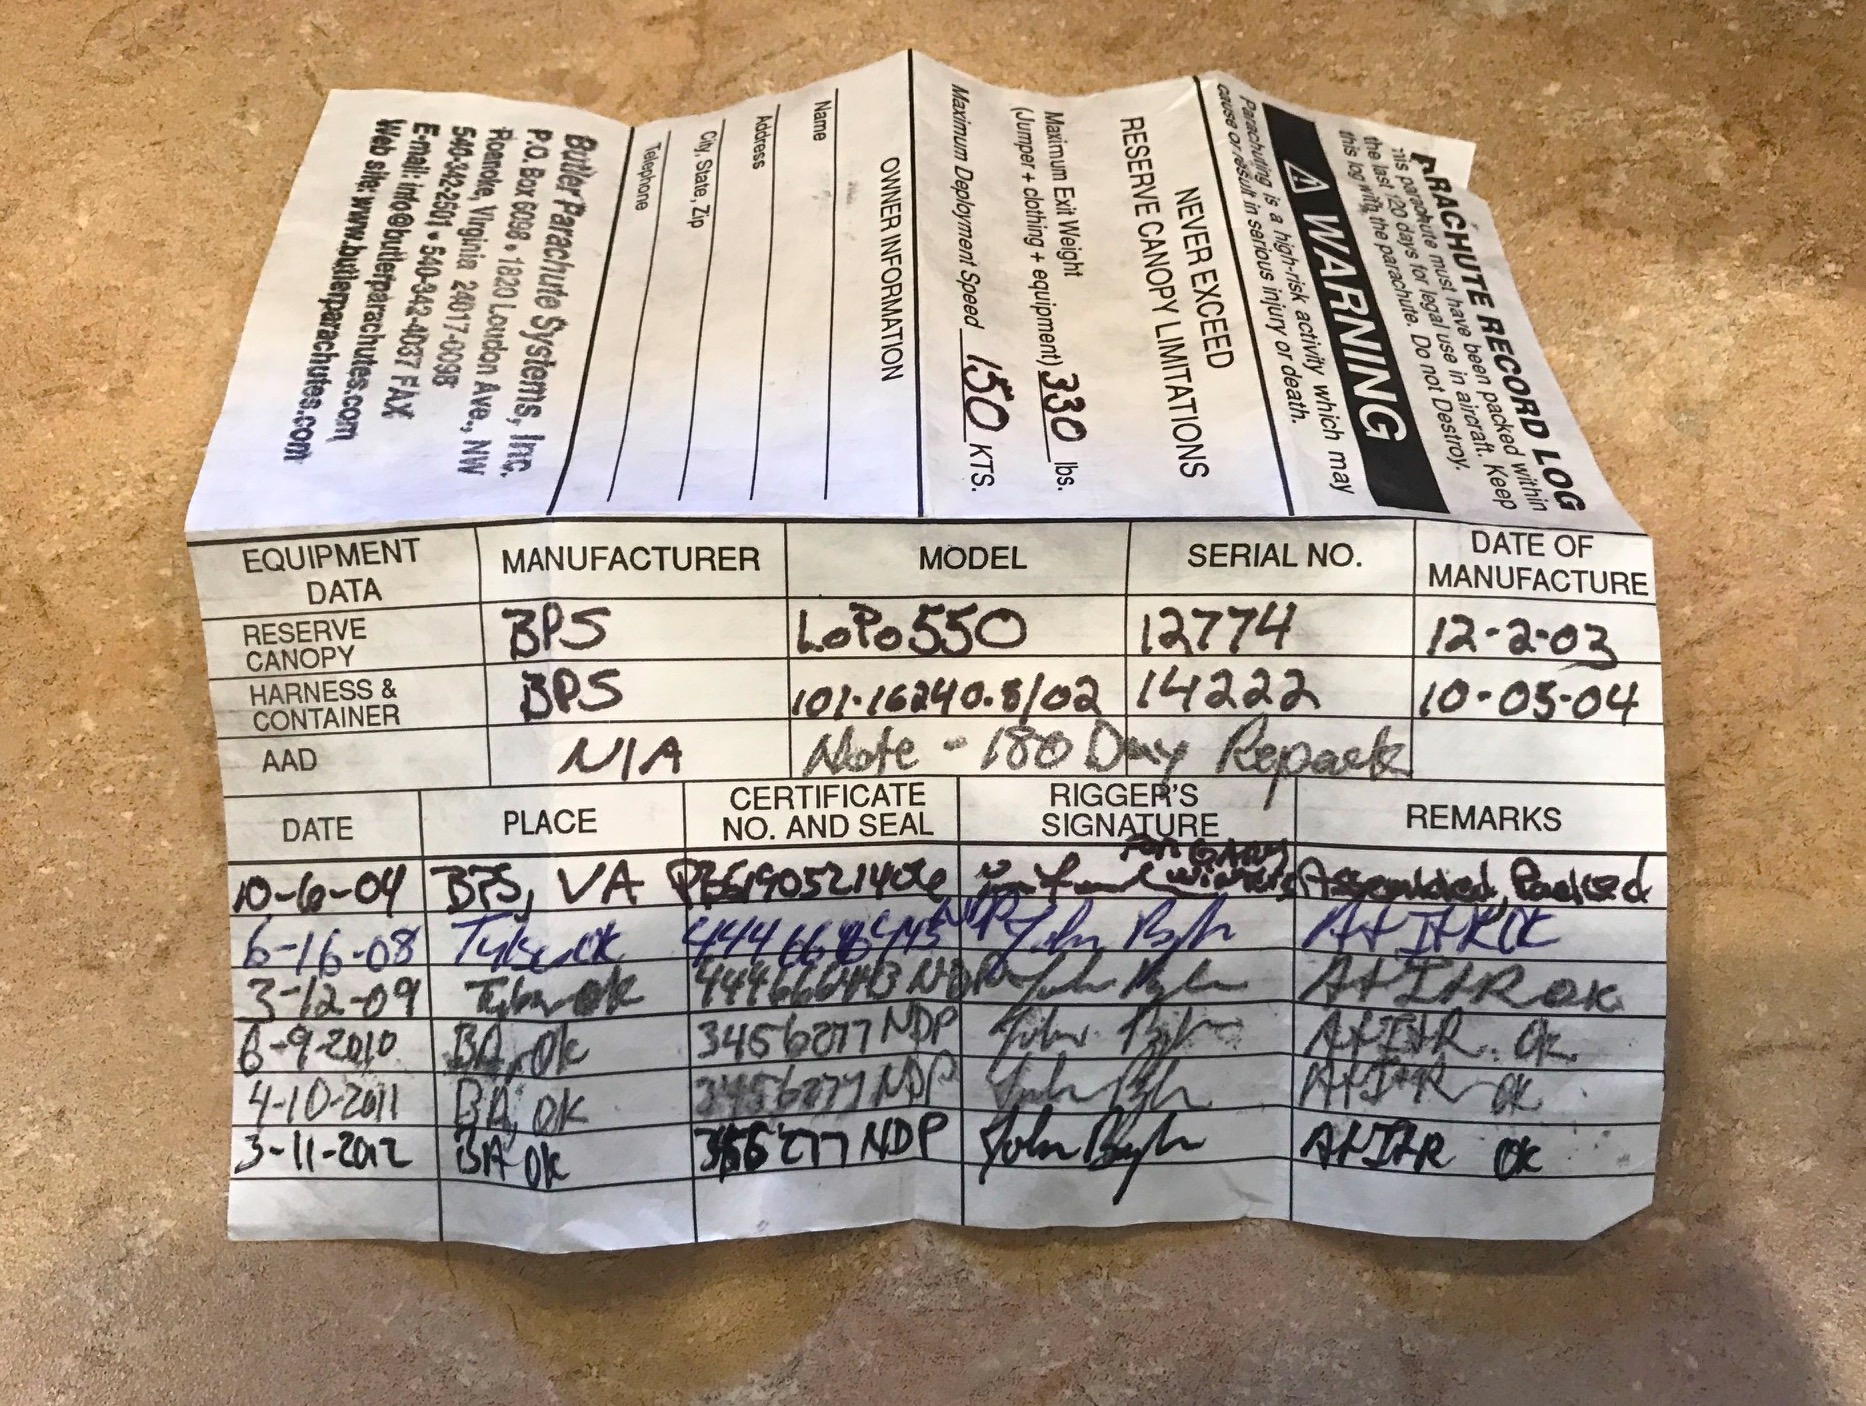 PARACHUTE RECORD LOG
This parachute must have been packed within
the last 120 days for legal use in aircraft. Keep
this log with the parachute. Do not Destroy.
WARNING
Parachuting is a high-risk activity which may
cause or result in serious injury or death.
NEVER EXCEED
RESERVE CANOPY LIMITATIONS
Maximum Exit Weight
(Jumper + clothing + equipment) 330 lbs.
Maximum Deployment Speed 150 KTS.
OWNER INFORMATION
Name
Address
City, State, Zip
Telephone
Butler Parachute Systems, Inc.
P.O. Box 6098 • 1820 Loudon Ave., NW
Roanoke, Virginia 24017-0098
540-342-2501 • 540-342-4037 FAX
E-mail: info@butlerparachutes.com
Web site: www.butlerparachutes.com
EQUIPMENT DATA MANUFACTURER MODEL SERIAL NO. DATE OF MANUFACTURE
RESERVE CANOPY BPS LoPo 550 12774 12-2-03
HARNESS & CONTAINER BPS 101-16240.8/02 14222 10-05-04
AAD N/A Note - 180 Day Repack
DATE PLACE CERTIFICATE NO. AND SEAL RIGGER'S SIGNATURE REMARKS
10-6-04 BPS, VA For Gary Assembled, Packed
6-16-08 OK NDP John A+I+R OK
3-12-09 OK John A+I+R OK
6-9-2010 BA, OK 3456277 NDP John A+I+R OK
4-10-2011 BA, OK 3456277 NDP John A+I+R OK
3-11-2012 BA OK NDP John A+I+R OK